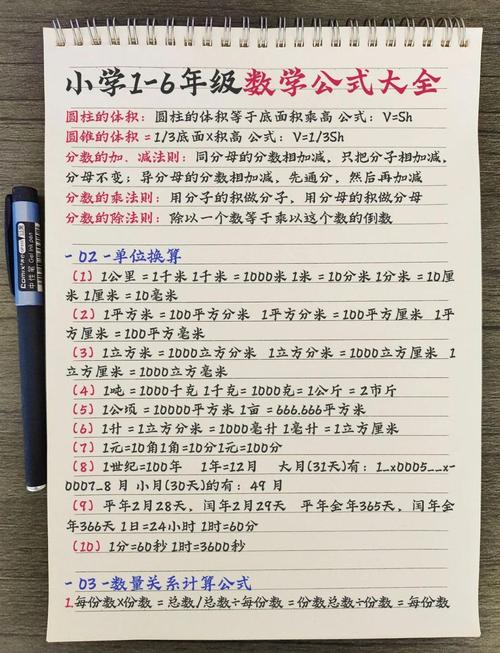 小学1-6年级数学公式大全
圆柱的体积：圆柱的体积等于底面积乘高 公式：V=Sh
圆锥的体积 =1/3底面X积高 公式：V=1/3Sh
分数的加、减法则：同分母的分数相加减，只把分子相加减，
分母不变；异分母的分数相加减，先通分，然后再加减
分数的乘法则：用分子的积做分子，用分母的积做分母
分数的除法则：除以一个数等于乘以这个数的倒数
-02-单位换算
(1) 1公里=1千米 1千米=1000米 1米=10分米 1分米=10厘
米 1厘米=10毫米
(2) 1平方米=100平方分米 1平方分米=100平方厘米 1平
方厘米=100平方毫米
(3) 1立方米=1000立方分米 1立方分米=1000立方厘米 1
立方厘米=1000立方毫米
(4) 1吨=1000千克 1千克=1000克=1公斤=2市斤
(5) 1公顷=10000平方米 1亩=666.666平方米
(6) 1升=1立方分米=1000毫升 1毫升=1立方厘米
(7) 1元=10角1角=10分1元=100分
(8) 1世纪=100年 1年=12月 大月(31天)有：1_x0005__x-
0007_8月 小月(30天)的有：49月
(9) 平年2月28天，闰年2月29天 平年全年365天，闰年全
年366天 1日=24小时 1时=60分
(10) 1分=60秒 1时=3600秒
-03-数量关系计算公式
1.每份数X份数=总数/总数÷每份数=份数总数÷份数=每份数
Comix
中性笔 Gel ink pen